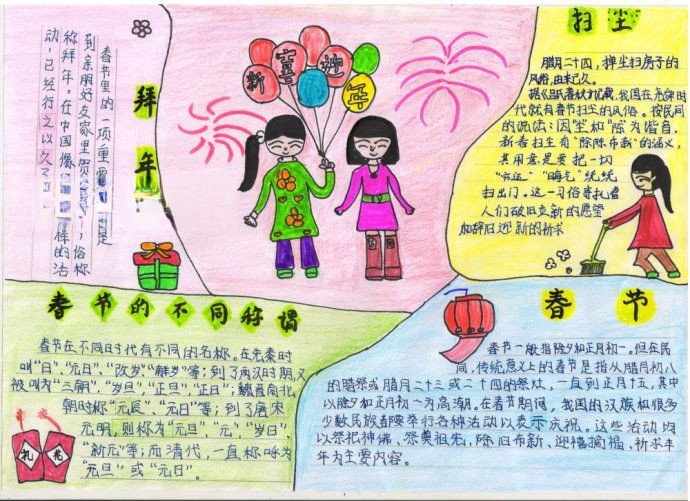 拜年
春节里的一项重要
是
到亲朋好友家里贺
俗称
称拜年。在中国
样的活
动,已经行之以久了
新喜迎年
扫尘
腊月二十四,掸尘扫房子的
风俗,由来已久。
据《吕氏春秋》记载,我国在尧舜时
代就有春节扫尘的风俗。按民间
的说法:因“尘”和“陈”为谐音,
新春扫尘有“除陈布新”的涵义,
其用意是要把一切
“穷运”“晦气”统统
扫出门。这一习俗寄托着
人们破旧立新的愿望
和辞旧迎新的祈求
春节的不同称谓
春节在不同时代有不同的名称。在先秦时
叫“日”、“元日”、“改岁”、“献岁”等;到了两汉时期,又
被叫为“三朝”、“岁旦”、“正旦”、“正日”;魏晋南北
朝时称“元辰”、“元日”等;到了唐宋
元明,则称为“元旦”、“元”、“岁日”、
“新元”等;而清代,一直称呼为
“元旦”或“元日”。
礼花
春节
春节一般指除夕和正月初一。但在民
间,传统意义上的春节是指从腊月初八
的腊祭或腊月二十三或二十四的祭灶,一直到正月十五,其中
以除夕和正月初一为高潮。在春节期间,我国的汉族和很多
少数民族都要举行各种活动以表示庆祝。这些活动均
以祭祀神佛、祭奠祖先、除旧布新、迎禧接福、祈求丰
年为主要内容。